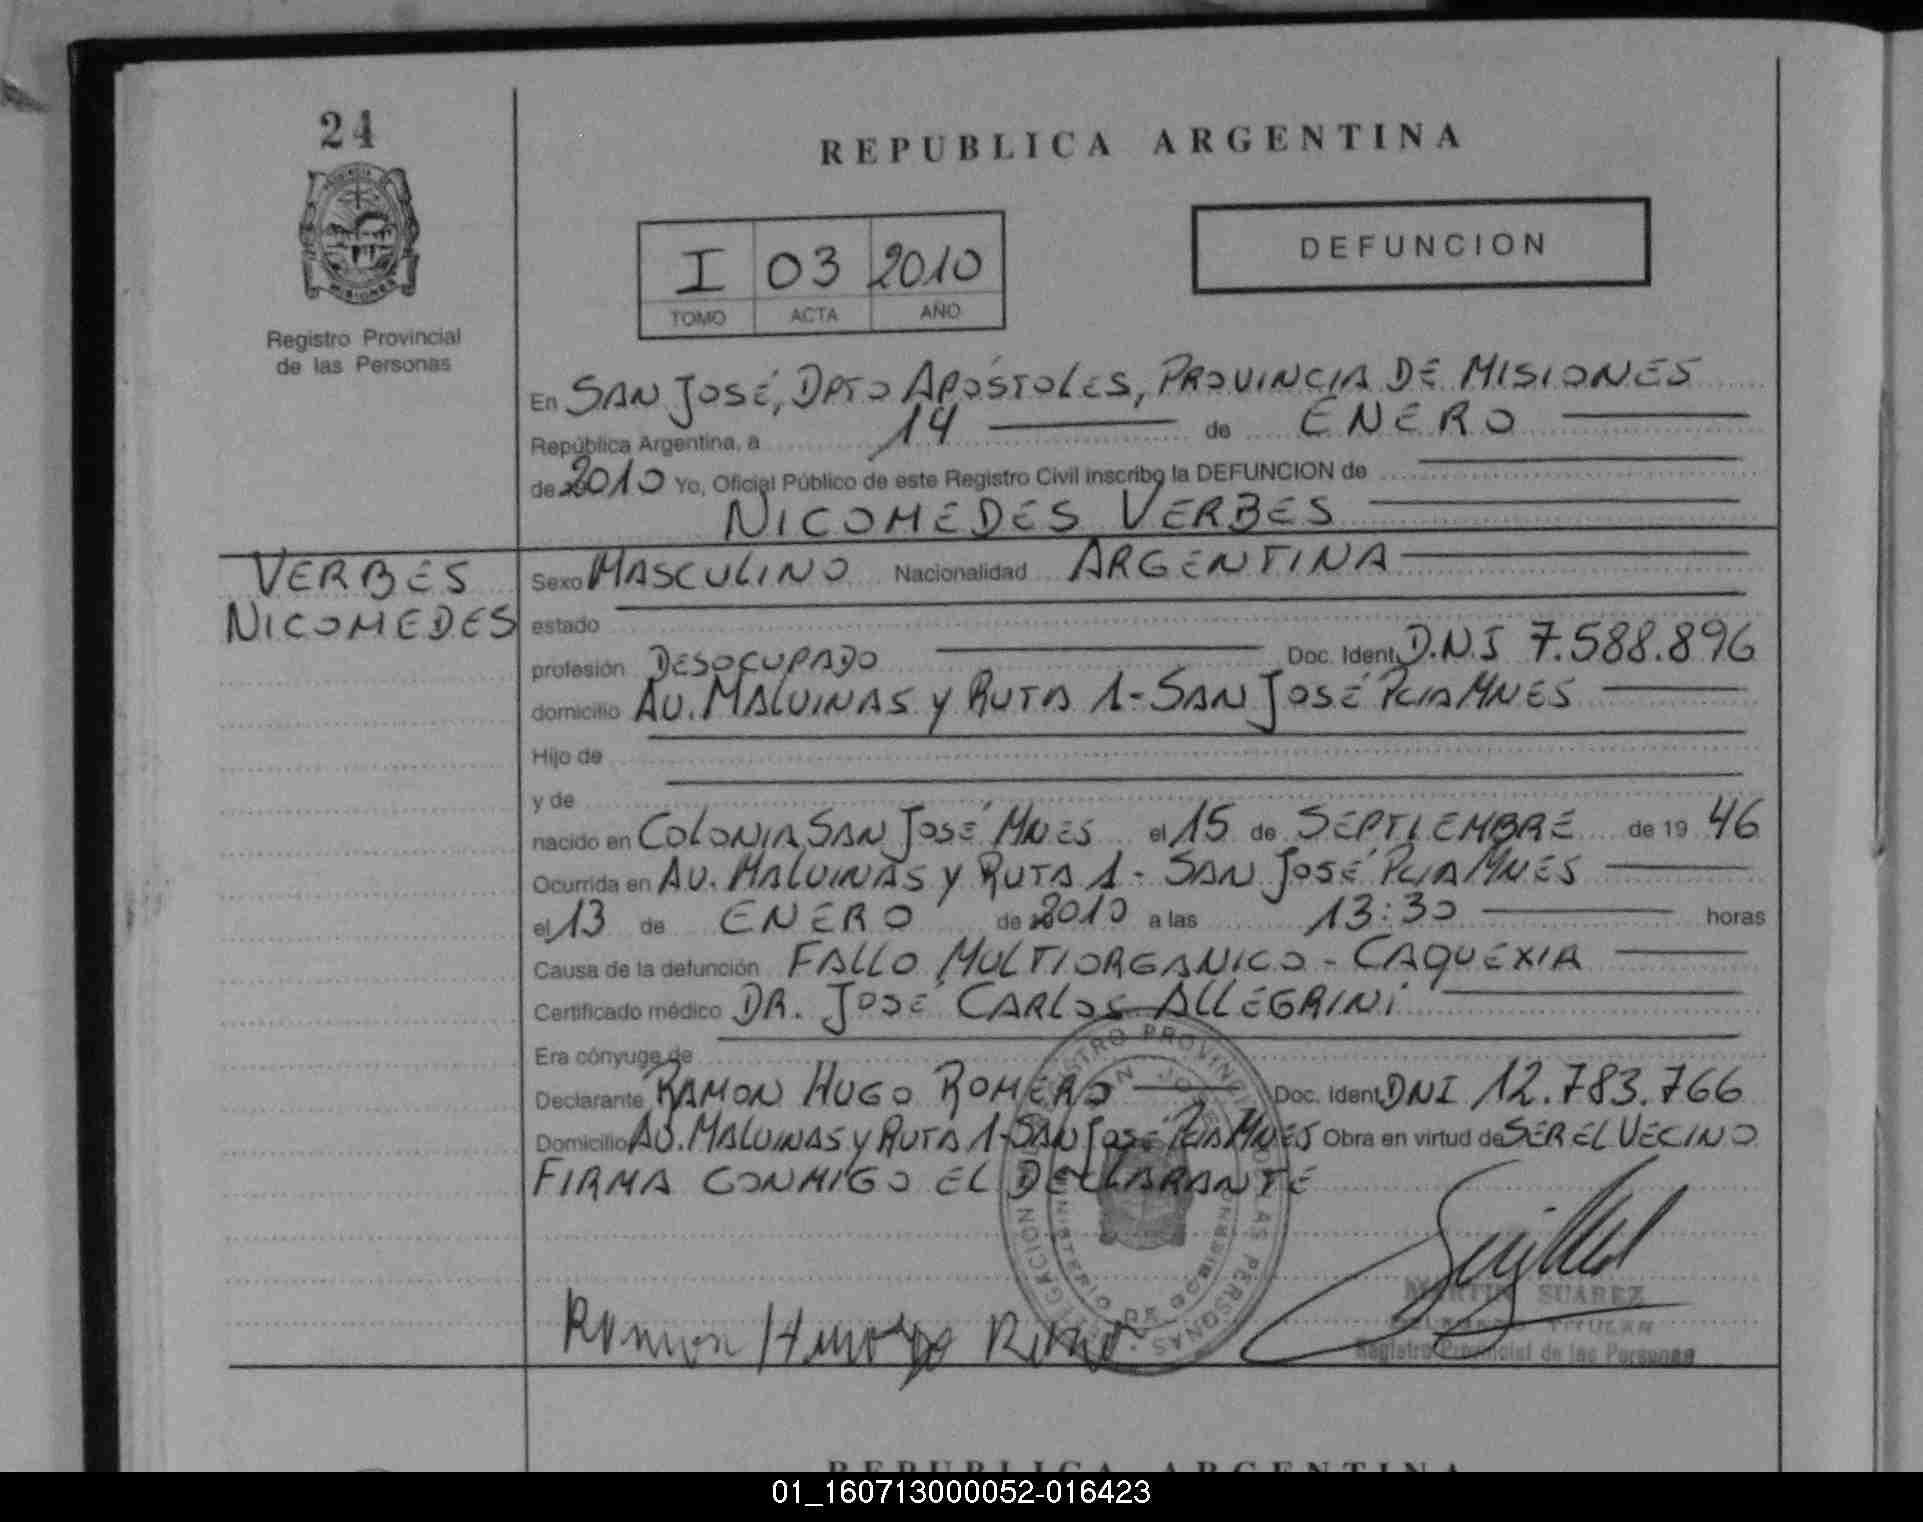 24
PROVINCIA DE
MISIONES
Registro Provincial
de las Personas
REPUBLICA ARGENTINA
I 03 2010
TOMO ACTA AÑO
DEFUNCION
En SAN JOSÉ, DPTO APÓSTOLES, PROVINCIA DE MISIONES
República Argentina, a 14 de ENERO
de 2010 Yo, Oficial Público de este Registro Civil inscribo la DEFUNCION de
NICOMEDES VERBES
VERBES
NICOMEDES
Sexo MASCULINO Nacionalidad ARGENTINA
estado
profesión DESOCUPADO Doc. Ident. D.N.I 7.588.896
domicilio AV. MALVINAS Y RUTA 1 - SAN JOSÉ PCIA MNES
Hijo de
y de
nacido en COLONIA SAN JOSÉ MNES el 15 de SEPTIEMBRE de 19 46
Ocurrida en AV. MALVINAS Y RUTA 1 - SAN JOSÉ PCIA MNES
el 13 de ENERO de 2010 a las 13:30 horas
Causa de la defunción FALLO MULTIORGANICO - CAQUEXIA
Certificado médico DR. JOSÉ CARLOS ALLEGRINI
Era cónyuge de
Declarante RAMON HUGO ROMERO Doc. Ident. DNI 12.783.766
Domicilio AV. MALVINAS Y RUTA 1 - SAN JOSÉ PCIA MNES Obra en virtud de SER EL VECINO
FIRMA CONMIGO EL DECLARANTE
REGISTRO PROVINCIAL DE LAS PERSONAS
DELEGACION SAN JOSE
MINISTERIO DE GOBIERNO
Ramon Hugo
MARTIN SUAREZ
DELEGADO TITULAR
Registro Provincial de las Personas
REPUBLICA ARGENTINA
01_160713000052-016423